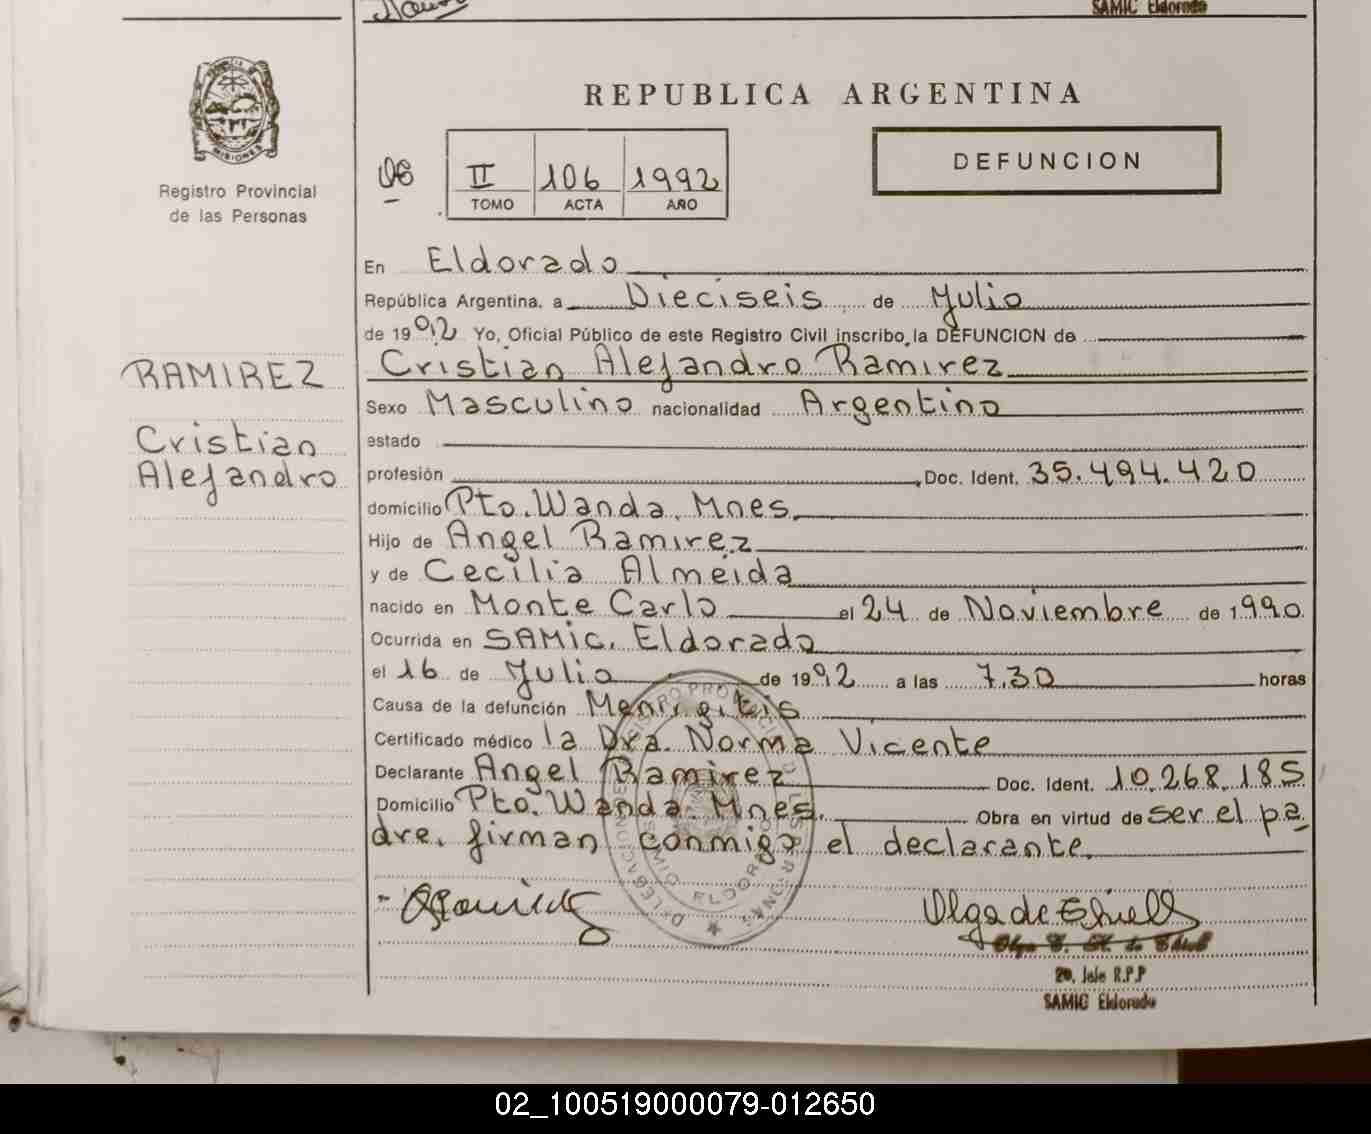 SAMIC Eldorado
REPUBLICA ARGENTINA
PROVINCIA DE
MISIONES
Registro Provincial
de las Personas
II 106 1992
TOMO ACTA AÑO
DEFUNCION
En Eldorado
República Argentina, a Dieciseis de Julio
de 1992 Yo, Oficial Público de este Registro Civil inscribo la DEFUNCION de
RAMIREZ
Cristian Alejandro Ramirez
Sexo Masculino nacionalidad Argentino
Cristian
Alejandro
estado
profesión Doc. Ident. 35.494.420
domicilio Pto. Wanda. Mnes.
Hijo de Angel Ramirez
y de Cecilia Almeida
nacido en Monte Carlo el 24 de Noviembre de 1990
Ocurrida en SAMIC. Eldorado
el 16 de Julio de 1992 a las 7.30 horas
Causa de la defunción Meningitis
Certificado médico la Dra. Norma Vicente
Declarante Angel Ramirez Doc. Ident. 10.268.185
Domicilio Pto. Wanda. Mnes. Obra en virtud de ser el pa
dre. firman conmigo el declarante.
ELDORADO
Olga de
2º. Jefe R.P.P
SAMIC Eldorado
02_100519000079-012650